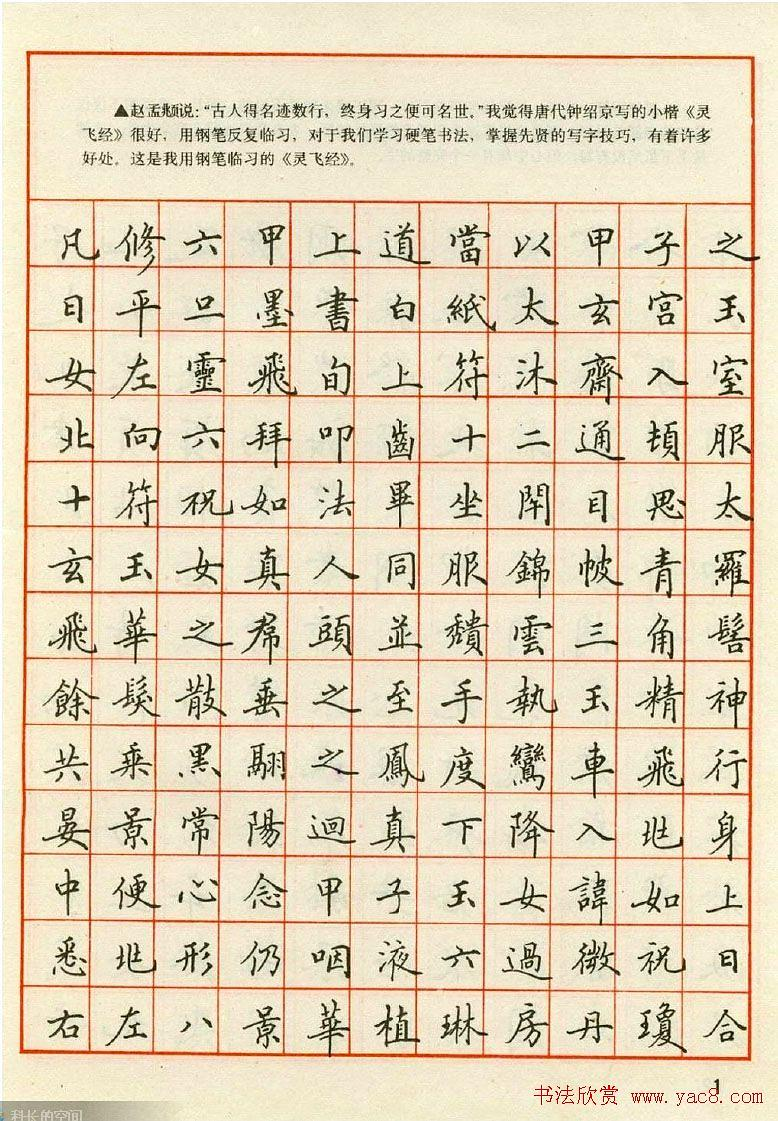 ▲赵孟頫说：“古人得名迹数行，终身习之便可名世。”我觉得唐代钟绍京写的小楷《灵
飞经》很好，用钢笔反复临习，对于我们学习硬笔书法，掌握先贤的写字技巧，有着许多
好处。这是我用钢笔临习的《灵飞经》。
凡修六甲上道當以甲子之
日平旦墨書白紙太玄宮玉
女左靈飛旬上符沐齋入室
北向六拜叩齒十二通頓服
十符祝如法畢坐閉目思太
玄玉女真人同服錦帔青羅
飛華之帬頭並頹雲三角髻
餘髮散垂之至手執玉精神
共乘黑翮之鳳度鸞車飛行
晏景常陽迴真下降入兆身
中便心念甲子玉女諱如上
悉兆形仍咽液六過微祝曰
右左八景華植琳房丹瓊合
1
书法欣赏 www.yac8.com
科长的空间